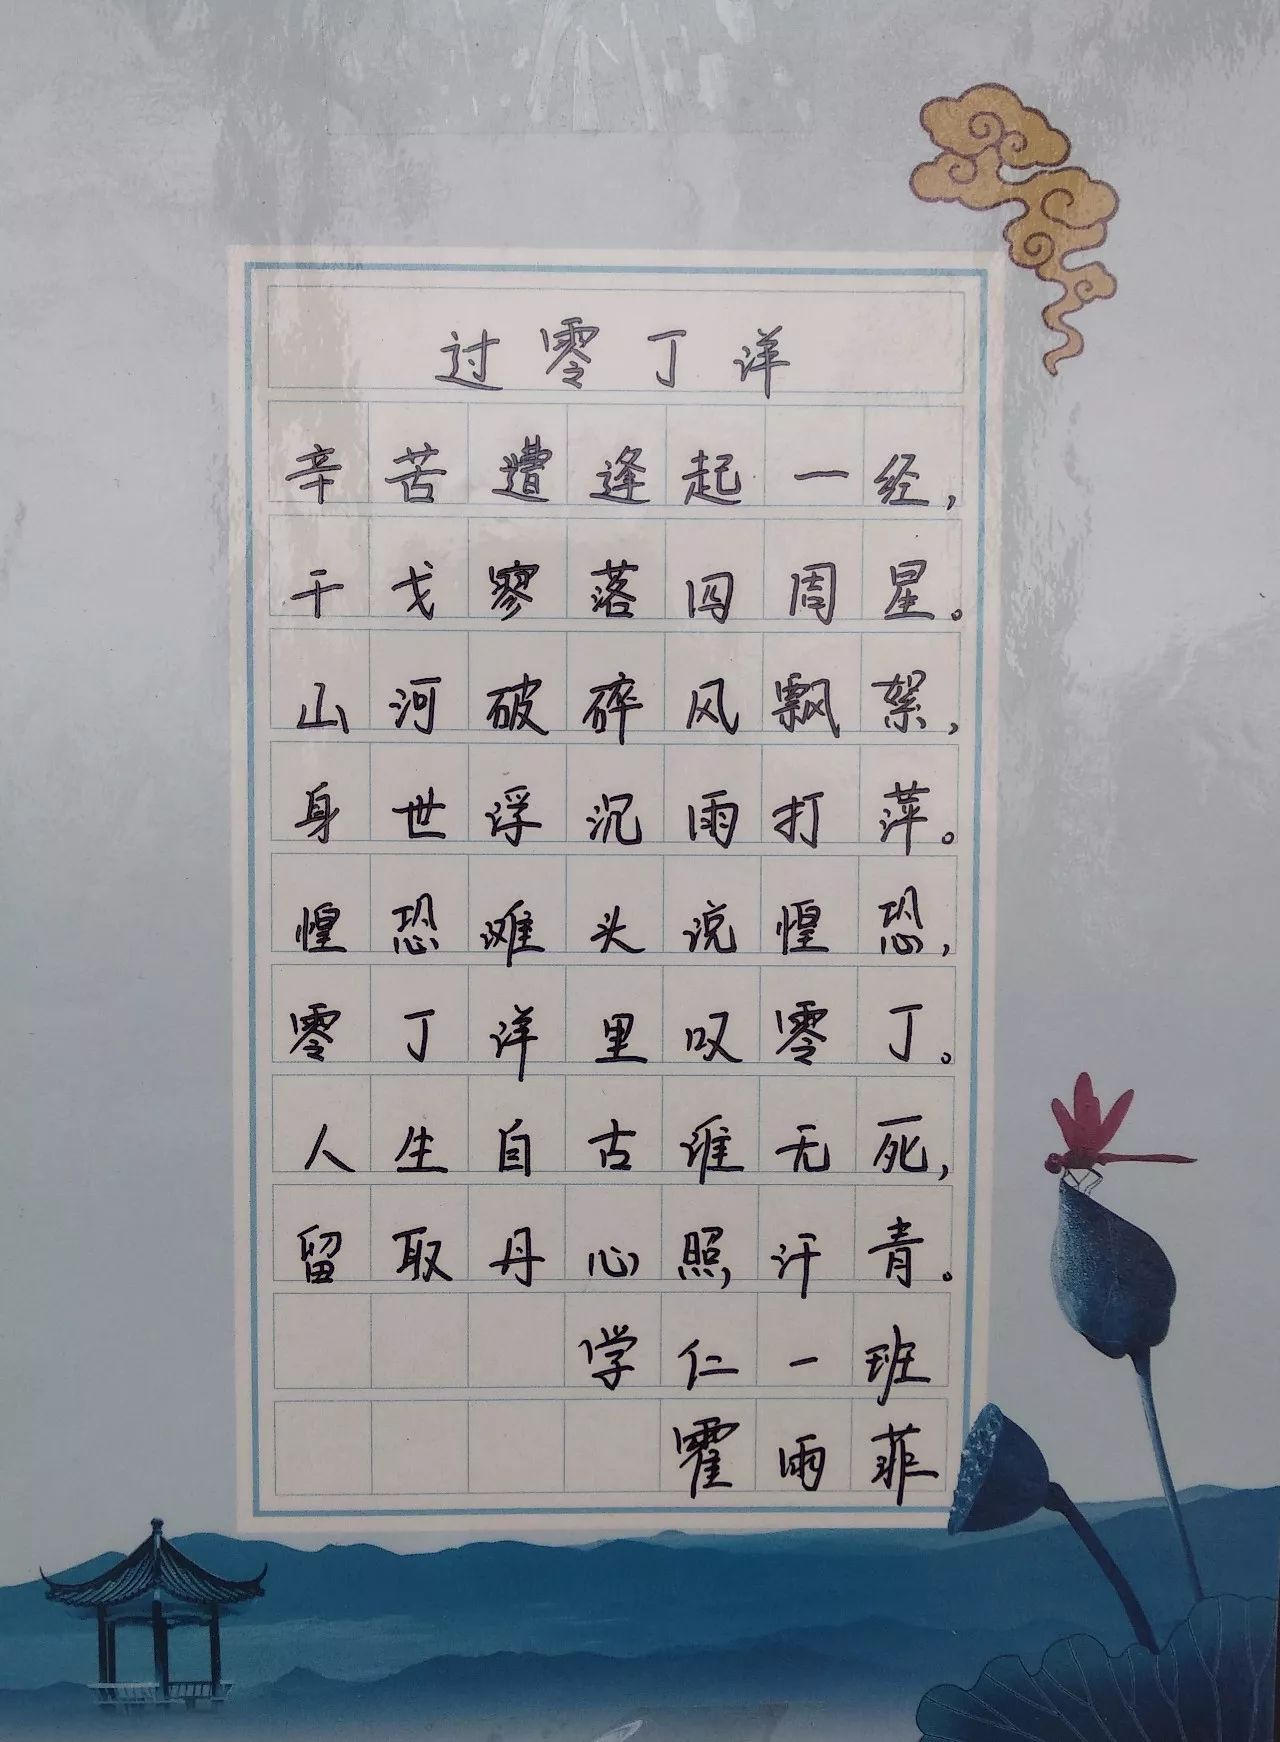 过零丁洋
辛苦遭逢起一经，
干戈寥落四周星。
山河破碎风飘絮，
身世浮沉雨打萍。
惶恐滩头说惶恐，
零丁洋里叹零丁。
人生自古谁无死，
留取丹心照汗青。
学仁一班
霍雨菲